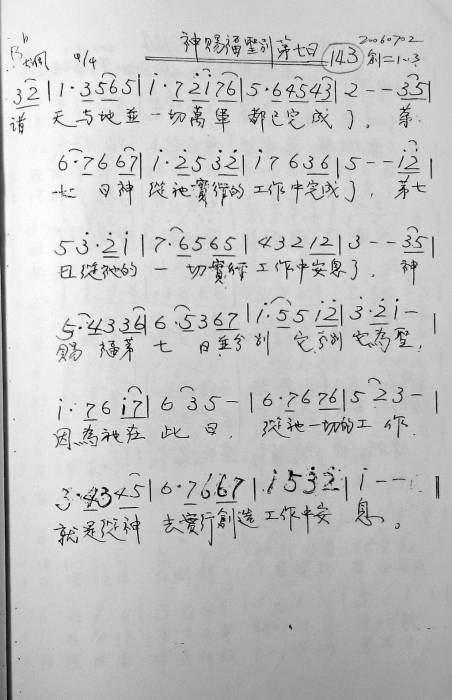 神賜福聖別第七日 143 20060702
bB 4/4 創二1-3
3 2 | 1 · 3 5 6 5 | i · 7 2 i 7 6 | 5 · 6 4 5 4 3 | 2 - - 3 5 |
諸 天与地並一切萬軍都已完成了。第
6 · 7 6 6 7 | i · 2 5 3 2 | i 7 6 3 6 | 5 - - i 2 |
七日神從祂實行的工作中完成了,第七
5 3 · 2 i | 7 · 6 5 6 5 | 4 3 2 1 2 | 3 - - 3 5 |
日從祂的一切實行工作中安息了。神
5 · 4 3 3 6 | 6 · 5 3 6 7 | i · 5 5 i 2 | 3 · 2 i - |
賜福第七日並分別它分別它為聖,
i · 7 6 i 7 | 6 3 5 - | 6 · 7 6 7 6 | 5 2 3 - |
因為祂在此日,從祂一切的工作
3 · 4 3 4 5 | 6 · 7 6 6 7 | i 5 3 2 | i - - ||
就是從神去實行創造工作中安息。